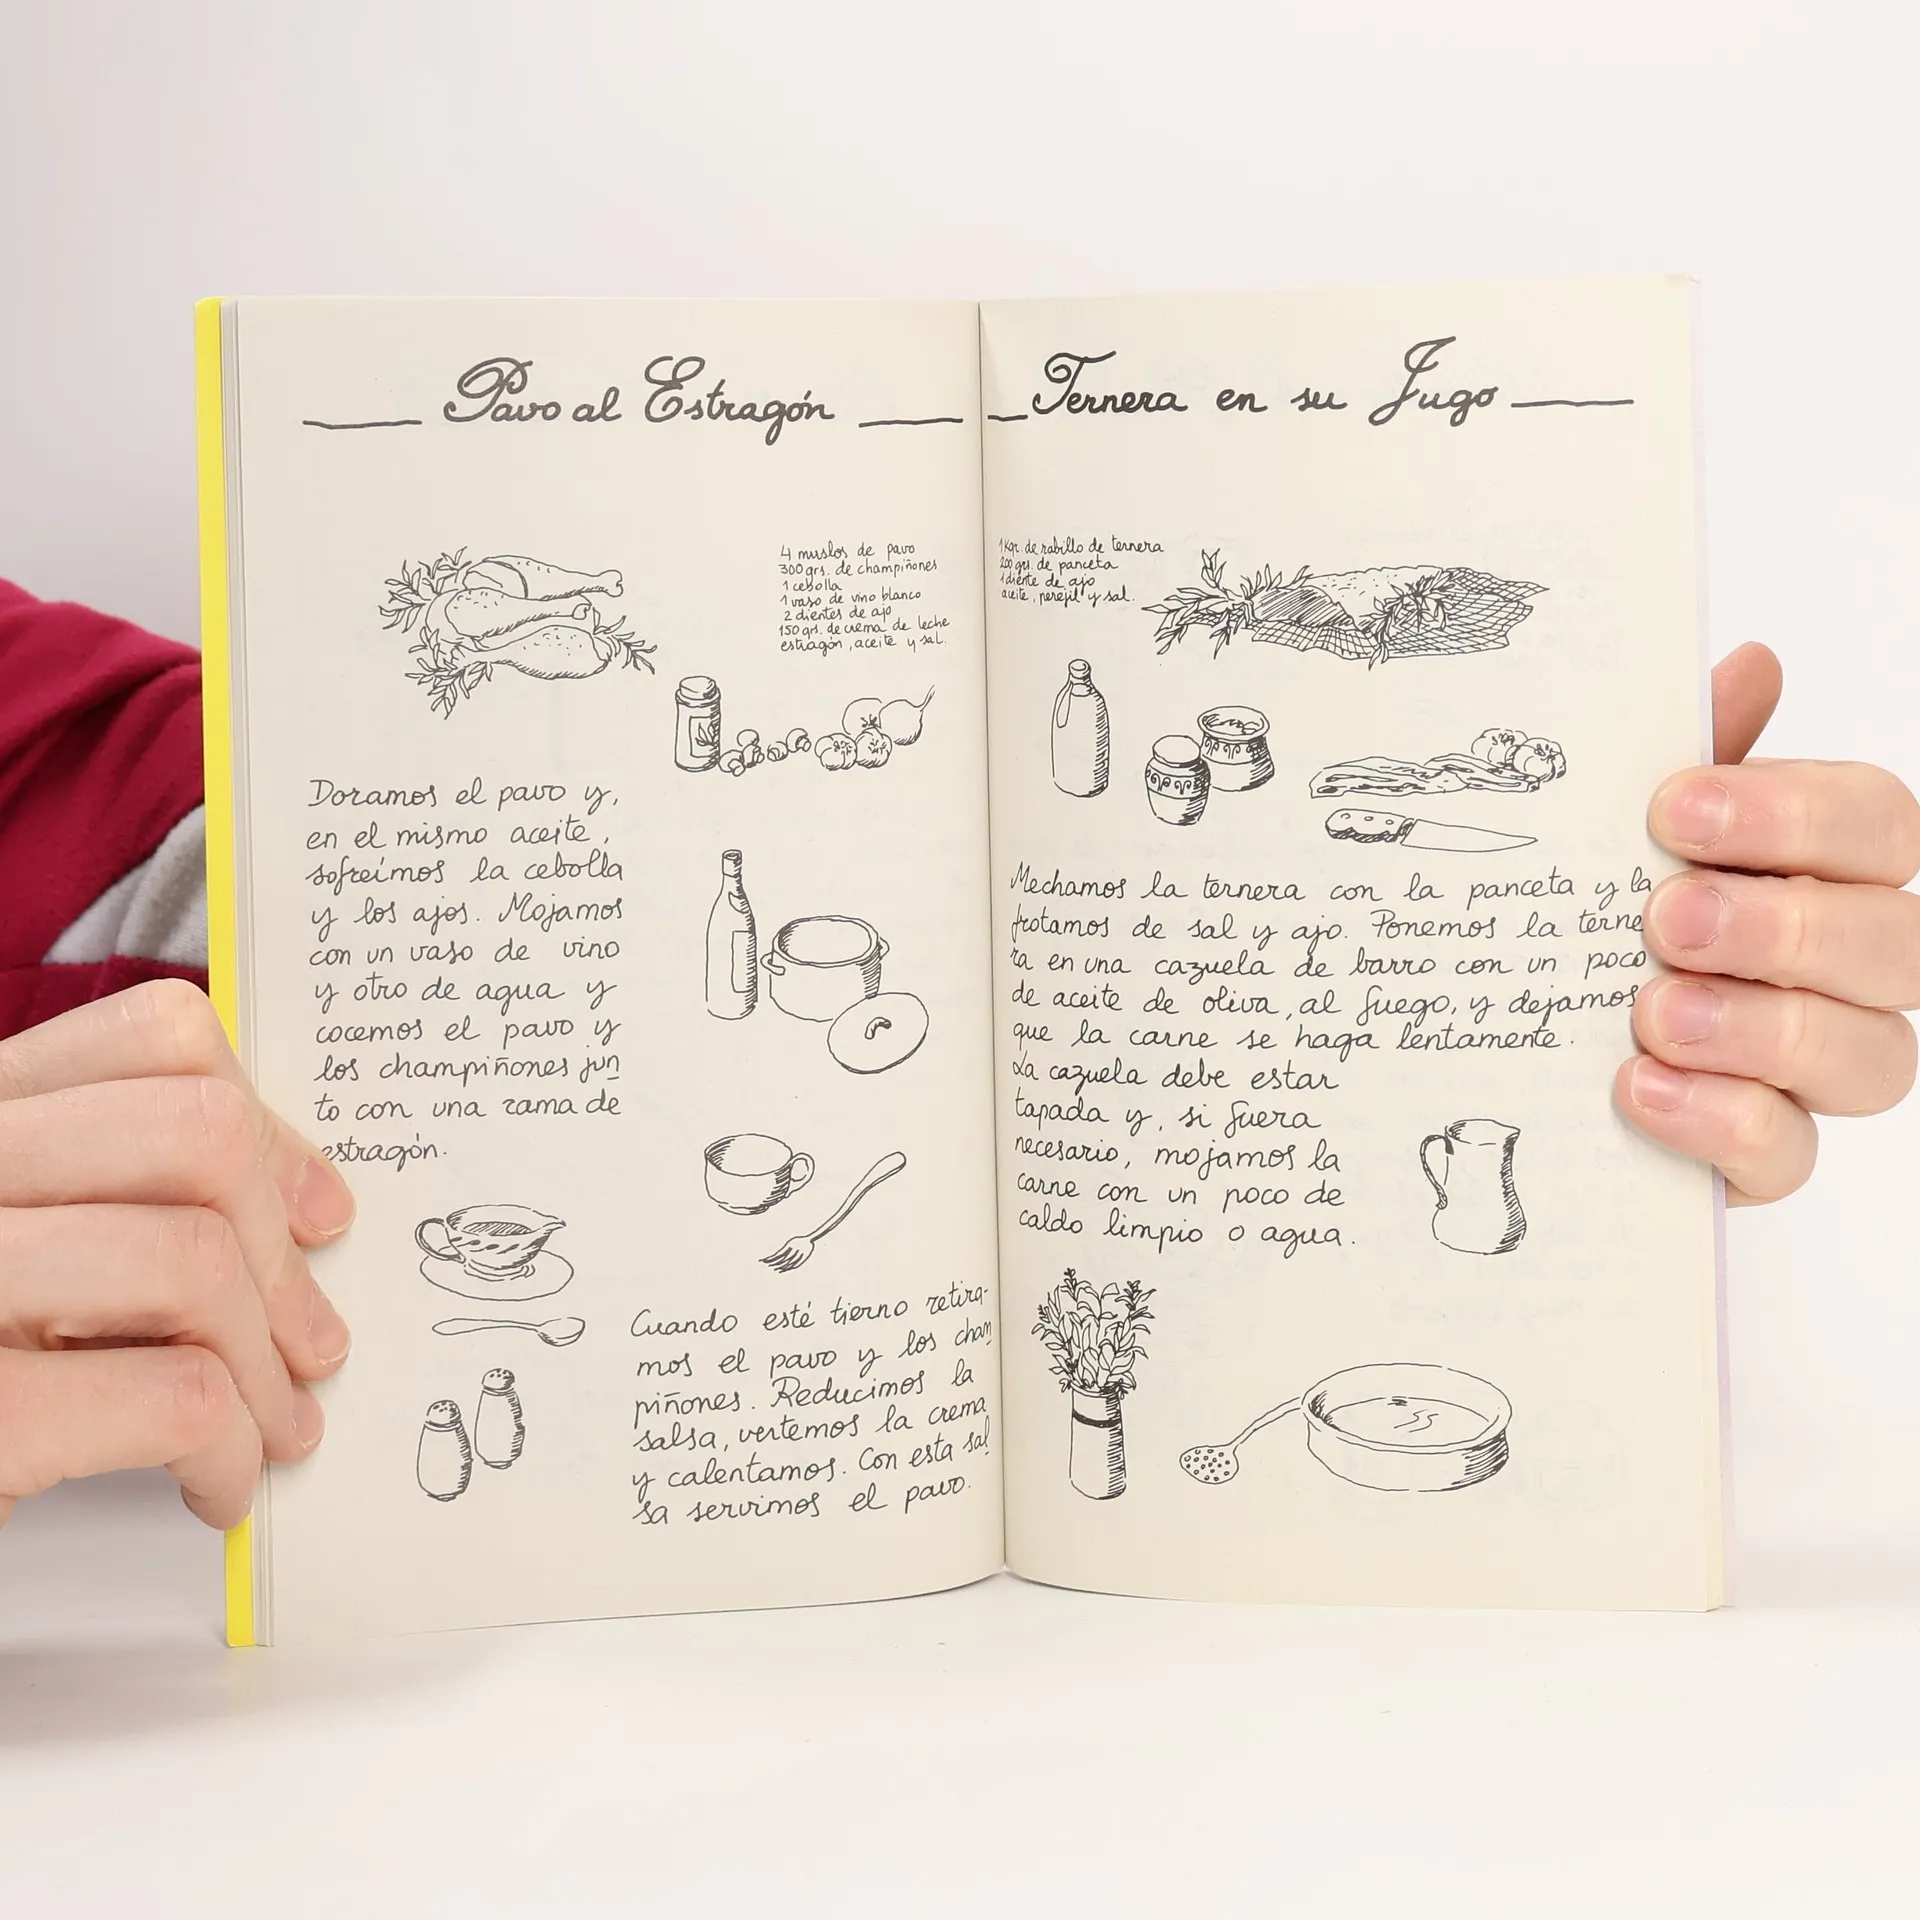 Pavo al Estragón
4 muslos de pavo
300 grs. de champiñones
1 cebolla
1 vaso de vino blanco
2 dientes de ajo
150 grs. de crema de leche
estragón, aceite y sal.
Doramos el pavo y,
en el mismo aceite,
sofreímos la cebolla
y los ajos. Mojamos
con un vaso de vino
y otro de agua y
cocemos el pavo y
los champiñones jun
to con una rama de
estragón.
Cuando esté tierno retira-
mos el pavo y los cham
piñones. Reducimos la
salsa, vertemos la crema
y calentamos. Con esta sal
sa servimos el pavo.
Ternera en su Jugo
1 Kgr. de rabillo de ternera
200 grs. de panceta
1 diente de ajo
aceite, perejil y sal.
Mechamos la ternera con la panceta y la
frotamos de sal y ajo. Ponemos la terne
ra en una cazuela de barro con un poco
de aceite de oliva, al fuego, y dejamos
que la carne se haga lentamente.
La cazuela debe estar
tapada y, si fuera
necesario, mojamos la
carne con un poco de
caldo limpio o agua.